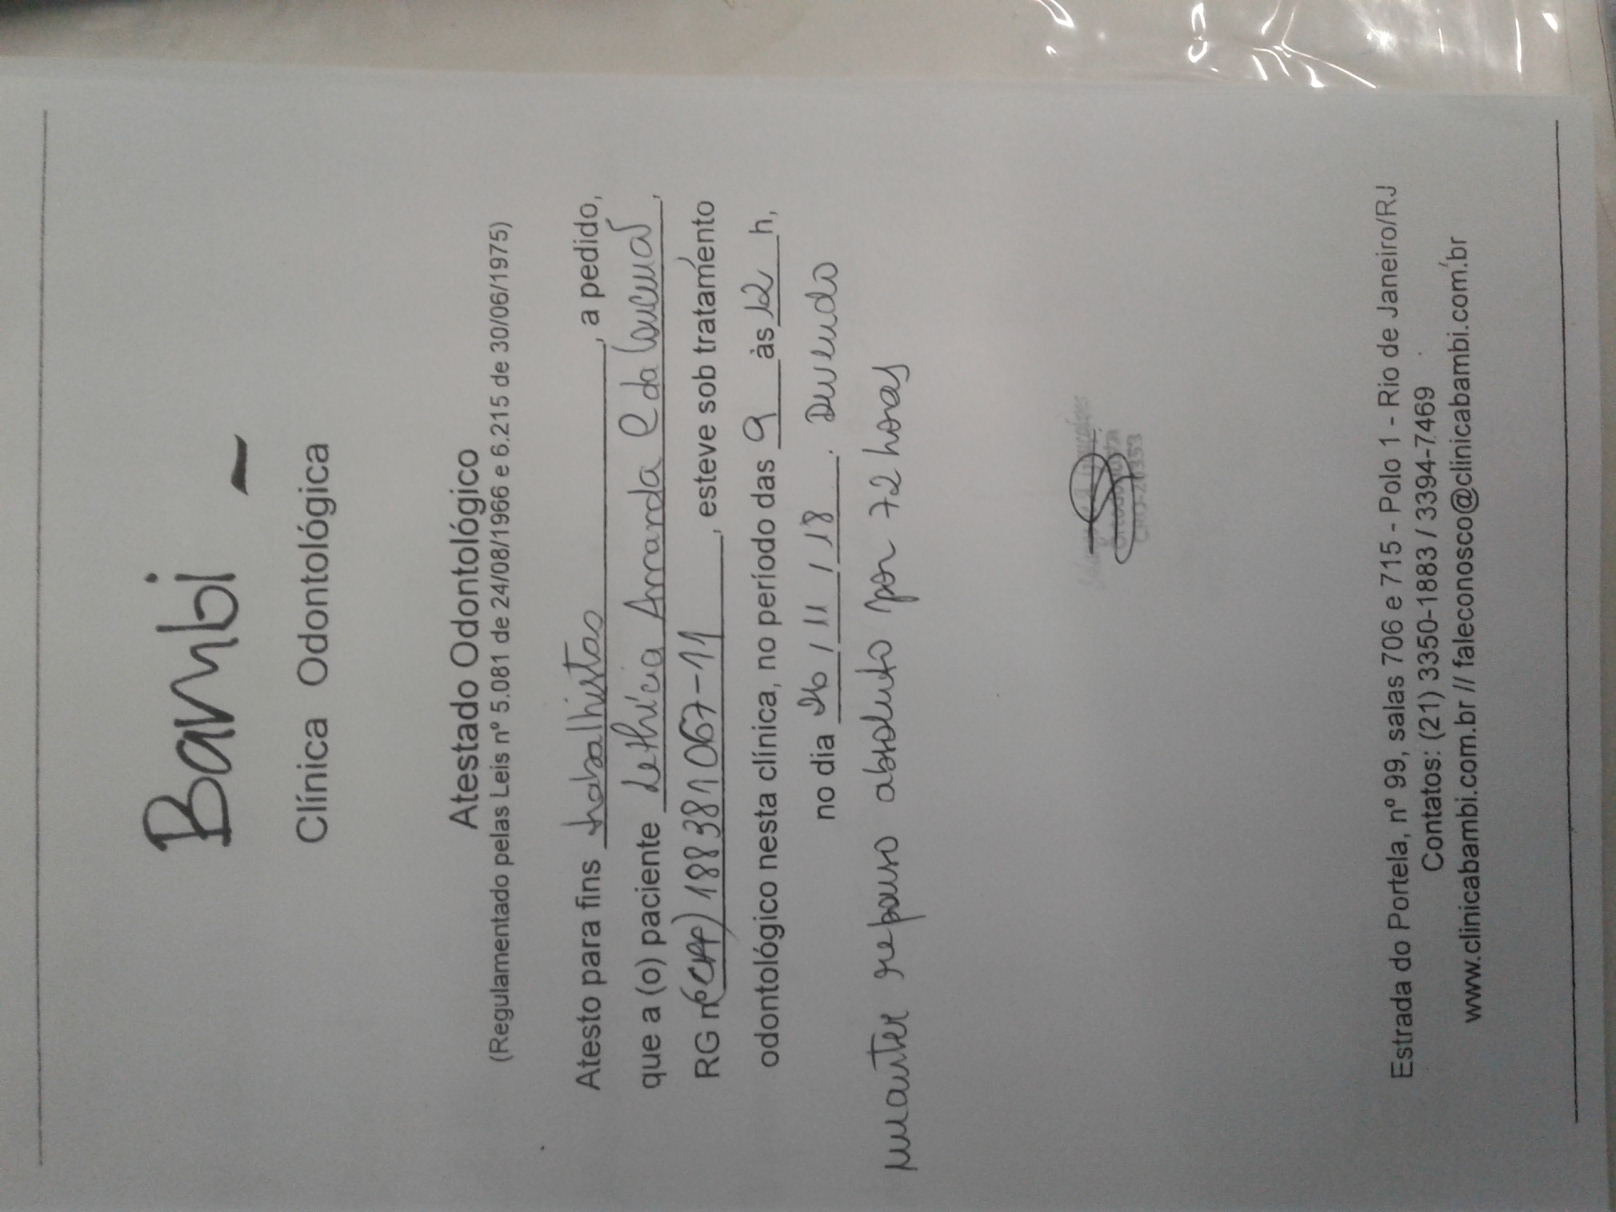 Bambi
Clínica Odontológica
Atestado Odontológico
(Regulamentado pelas Leis nº 5.081 de 24/08/1966 e 6.215 de 30/06/1975)
Atesto para fins trabalhistas, a pedido,
que a (o) paciente Lethícia Amanda C da
RG nº (CPF) 188381067-11, esteve sob tratamento
odontológico nesta clínica, no período das 9 às 12 h,
no dia 26 / 11 / 18. Devendo
manter repouso absoluto por 72 horas
Estrada do Portela, nº 99, salas 706 e 715 - Polo 1 - Rio de Janeiro/RJ
Contatos: (21) 3350-1883 / 3394-7469
www.clinicabambi.com.br // faleconosco@clinicabambi.com.br